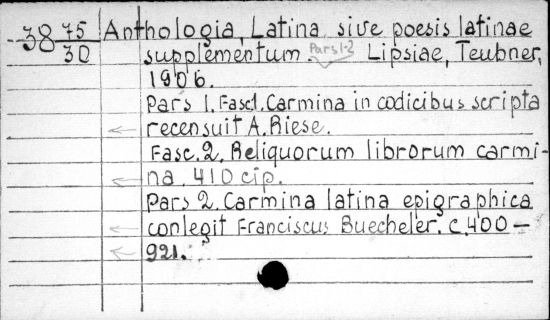 38 75/30 Anthologia, Latina sive poesis latinae
supplementum. Pars 1-2 Lipsiae, Teubner,
1906.
Pars 1. Fasc1. Carmina in codicibus scripta
recensuit A. Riese.
Fasc. 2. Reliquorum librorum carmi-
na. 410 cip.
Pars 2. Carmina latina epigraphica
conlegit Franciscus Buecheler. C. 400-
921.